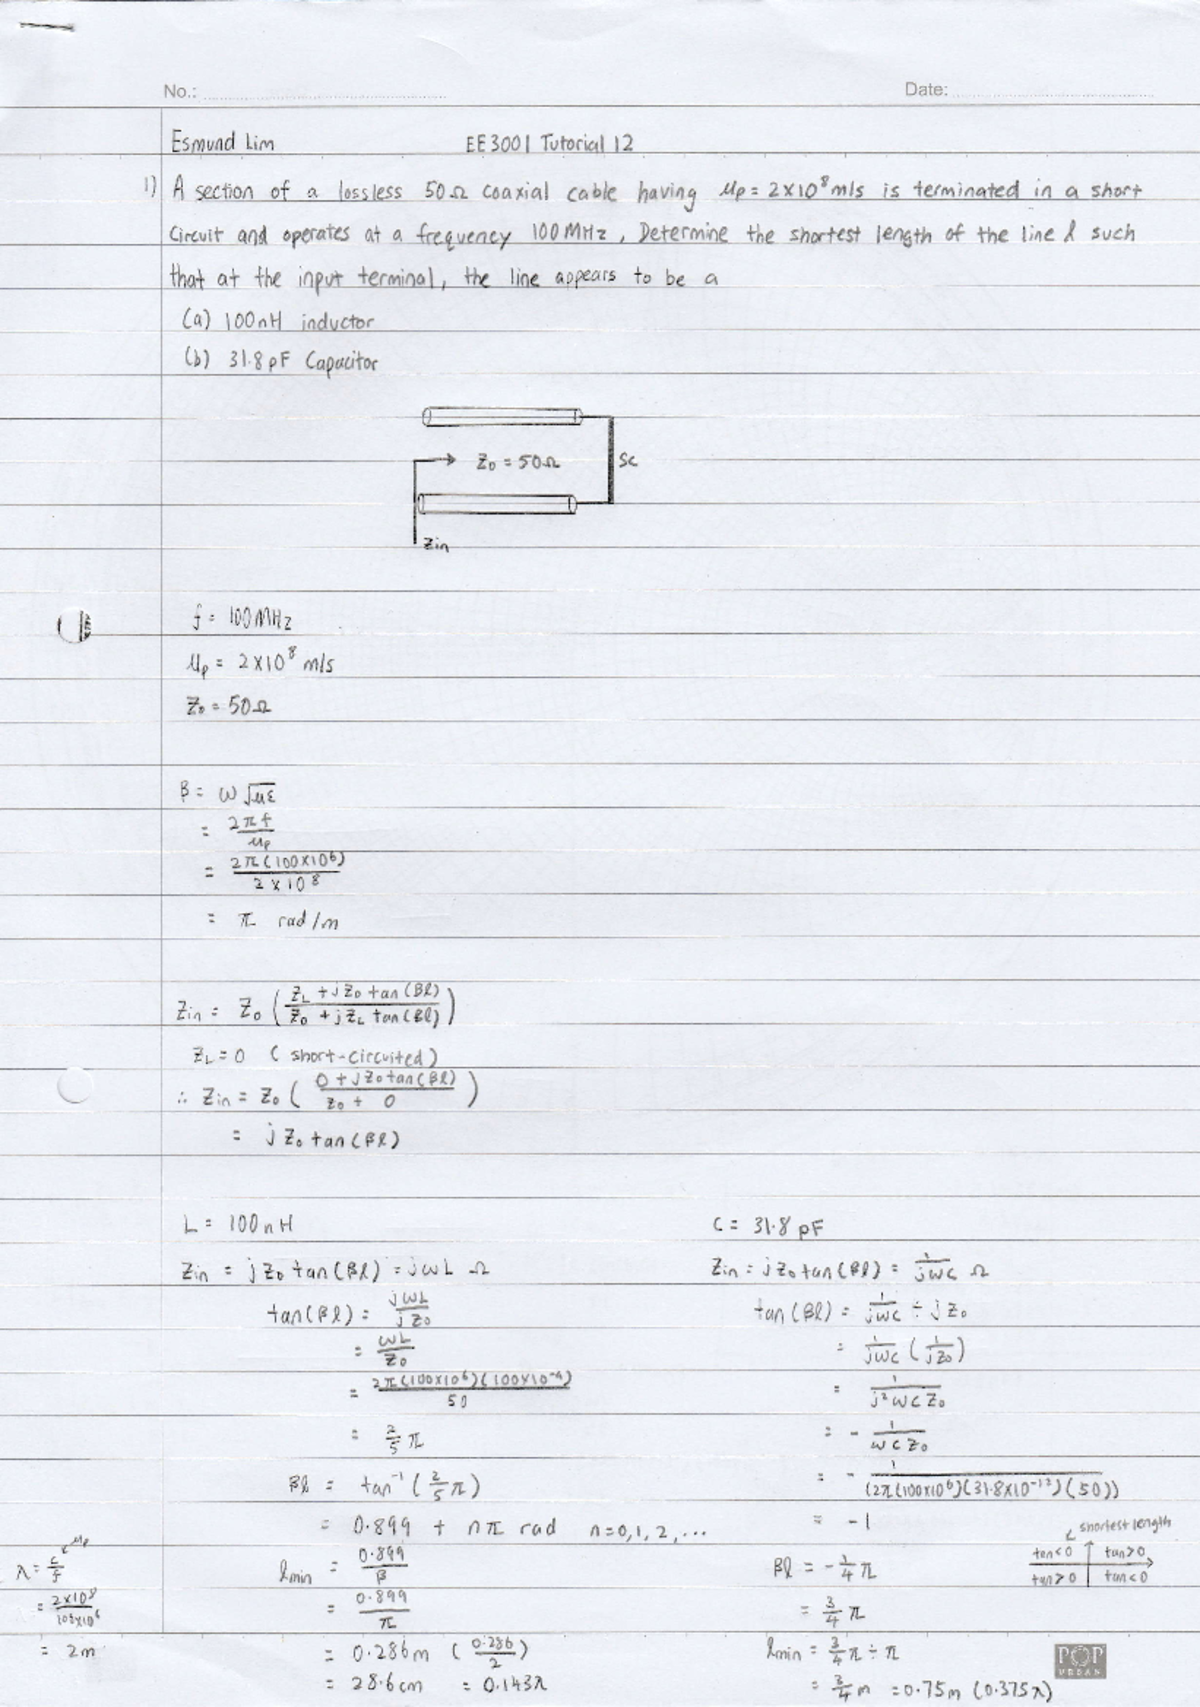 No.:
Date:
Esmund Lim
EE3001 Tutorial 12
1) A section of a lossless 50Ω coaxial cable having μp = 2×10⁸ m/s is terminated in a short
circuit and operates at a frequency 100MHz, Determine the shortest length of the line l such
that at the input terminal, the line appears to be a
(a) 100nH inductor
(b) 31.8pF Capacitor
Z₀ = 50Ω
SC
Zin
f = 100MHz
μp = 2×10⁸ m/s
Z₀ = 50Ω
β = ω√με
= 2πf / μp
= 2π(100×10⁶) / 2×10⁸
= π rad/m
Zin = Z₀ ( ZL + jZ₀ tan(βl) / Z₀ + jZL tan(βl) )
ZL = 0 (short-circuited)
∴ Zin = Z₀ ( 0 + jZ₀ tan(βl) / Z₀ + 0 )
= jZ₀ tan(βl)
L = 100nH
Zin = jZ₀ tan(βl) = jωL Ω
tan(βl) = jωL / jZ₀
= ωL / Z₀
= 2π(100×10⁶)(100×10⁻⁹) / 50
= 2/5 π
βl = tan⁻¹(2/5 π)
= 0.899 + nπ rad n=0,1,2,...
lmin = 0.899 / β
= 0.899 / π
= 0.286m (0.286/2)
= 28.6cm = 0.143λ
λ = c/f
μp
= 2×10⁸ / 100×10⁶
= 2m
C = 31.8pF
Zin = jZ₀ tan(βl) = 1/jωC Ω
tan(βl) = 1/jωC ÷ jZ₀
= 1/jωC (1/jZ₀)
= 1 / j²ωCZ₀
= - 1 / ωCZ₀
= - 1 / (2π(100×10⁶)(31.8×10⁻¹²)(50))
= -1
shortest length
tan<0 tan>0
tan>0 tan<0
βl = -1/4 π
= 3/4 π
lmin = 3/4 π ÷ π
= 3/4 m = 0.75m (0.375λ)
POP
URBAN